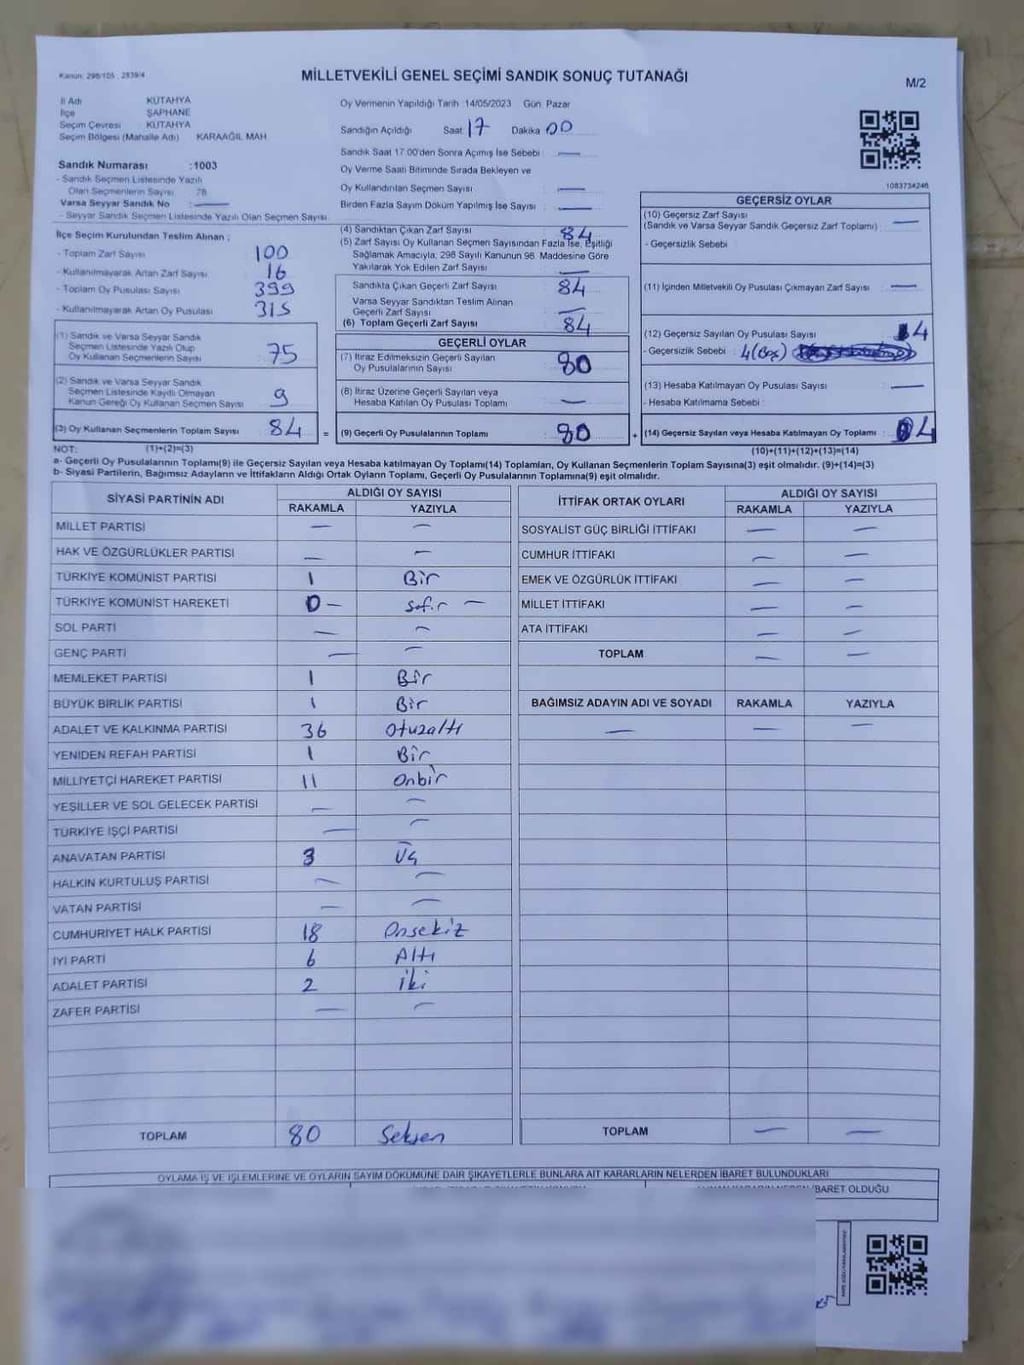 Kanun: 298/105 , 2839/4
MİLLETVEKİLİ GENEL SEÇİMİ SANDIK SONUÇ TUTANAĞI
M/2
İl Adı KÜTAHYA
İlçe ŞAPHANE
Seçim Çevresi KÜTAHYA
Seçim Bölgesi (Mahalle Adı) KARAAĞIL MAH
Sandık Numarası :1003
- Sandık Seçmen Listesinde Yazılı
Olan Seçmenlerin Sayısı 78
Varsa Seyyar Sandık No : —
- Seyyar Sandık Seçmen Listesinde Yazılı Olan Seçmen Sayısı
Oy Vermenin Yapıldığı Tarih 14/05/2023 Gün Pazar
Sandığın Açıldığı Saat 17 Dakika 00
Sandık Saat 17:00'den Sonra Açımış İse Sebebi : —
Oy Verme Saati Bitiminde Sırada Bekleyen ve
Oy Kullandırılan Seçmen Sayısı : —
Birden Fazla Sayım Döküm Yapılmış İse Sayısı : —
1083734246
İlçe Seçim Kurulundan Teslim Alınan ;
- Toplam Zarf Sayısı 100
- Kullanılmayarak Artan Zarf Sayısı 16
- Toplam Oy Pusulası Sayısı 399
- Kullanılmayarak Artan Oy Pusulası 315
(1) Sandık ve Varsa Seyyar Sandık
Seçmen Listesinde Yazılı Olup
Oy Kullanan Seçmenlerin Sayısı 75
(2) Sandık ve Varsa Seyyar Sandık
Seçmen Listesinde Kayıtlı Olmayan
Kanun Gereği Oy Kullanan Seçmen Sayısı 9
(3) Oy Kullanan Seçmenlerin Toplam Sayısı 84 =
(4) Sandıktan Çıkan Zarf Sayısı 84
(5) Zarf Sayısı Oy Kullanan Seçmen Sayısından Fazla İse, Eşitliği
Sağlamak Amacıyla, 298 Sayılı Kanunun 98. Maddesine Göre
Yakılarak Yok Edilen Zarf Sayısı —
Sandıkta Çıkan Geçerli Zarf Sayısı : 84
Varsa Seyyar Sandıktan Teslim Alınan
Geçerli Zarf Sayısı : —
(6) Toplam Geçerli Zarf Sayısı : 84
GEÇERLİ OYLAR
(7) İtiraz Edilmeksizin Geçerli Sayılan
Oy Pusulalarının Sayısı : 80
(8) İtiraz Üzerine Geçerli Sayılan veya
Hesaba Katılan Oy Pusulası Toplamı : —
(9) Geçerli Oy Pusulalarının Toplamı : 80 +
GEÇERSİZ OYLAR
(10) Geçersiz Zarf Sayısı
(Sandık ve Varsa Seyyar Sandık Geçersiz Zarf Toplamı) : —
- Geçersizlik Sebebi :
(11) İçinden Milletvekili Oy Pusulası Çıkmayan Zarf Sayısı : —
(12) Geçersiz Sayılan Oy Pusulası Sayısı 4
- Geçersizlik Sebebi : 4(Boş)
(13) Hesaba Katılmayan Oy Pusulası Sayısı : —
- Hesaba Katılmama Sebebi :
(14) Geçersiz Sayılan veya Hesaba Katılmayan Oy Toplamı : 4
NOT: (1)+(2)=(3)
(10)+(11)+(12)+(13)=(14)
a- Geçerli Oy Pusulalarının Toplamı(9) ile Geçersiz Sayılan veya Hesaba katılmayan Oy Toplamı(14) Toplamları, Oy Kullanan Seçmenlerin Toplam Sayısına(3) eşit olmalıdır. (9)+(14)=(3)
b- Siyasi Partilerin, Bağımsız Adayların ve İttifakların Aldığı Ortak Oyların Toplamı, Geçerli Oy Pusulalarının Toplamına(9) eşit olmalıdır.
SİYASİ PARTİNİN ADI ALDIĞI OY SAYISI
RAKAMLA YAZIYLA
MİLLET PARTİSİ — —
HAK VE ÖZGÜRLÜKLER PARTİSİ — —
TÜRKİYE KOMÜNİST PARTİSİ 1 Bir
TÜRKİYE KOMÜNİST HAREKETİ 0 — Sıfır —
SOL PARTİ — —
GENÇ PARTİ — —
MEMLEKET PARTİSİ 1 Bir
BÜYÜK BİRLİK PARTİSİ 1 Bir
ADALET VE KALKINMA PARTİSİ 36 Otuzaltı
YENİDEN REFAH PARTİSİ 1 Bir
MİLLİYETÇİ HAREKET PARTİSİ 11 Onbir
YEŞİLLER VE SOL GELECEK PARTİSİ — —
TÜRKİYE İŞÇİ PARTİSİ — —
ANAVATAN PARTİSİ 3 Üç
HALKIN KURTULUŞ PARTİSİ — —
VATAN PARTİSİ — —
CUMHURİYET HALK PARTİSİ 18 Onsekiz
İYİ PARTİ 6 Altı
ADALET PARTİSİ 2 İki
ZAFER PARTİSİ — —
TOPLAM 80 Seksen
İTTİFAK ORTAK OYLARI ALDIĞI OY SAYISI
RAKAMLA YAZIYLA
SOSYALİST GÜÇ BİRLİĞİ İTTİFAKI — —
CUMHUR İTTİFAKI — —
EMEK VE ÖZGÜRLÜK İTTİFAKI — —
MİLLET İTTİFAKI — —
ATA İTTİFAKI — —
TOPLAM — —
BAĞIMSIZ ADAYIN ADI VE SOYADI RAKAMLA YAZIYLA
— — —
TOPLAM — —
OYLAMA İŞ VE İŞLEMLERİNE VE OYLARIN SAYIM DÖKÜMÜNE DAİR ŞİKAYETLERLE BUNLARA AİT KARARLARIN NELERDEN İBARET BULUNDUKLARI
İBARET OLDUĞU